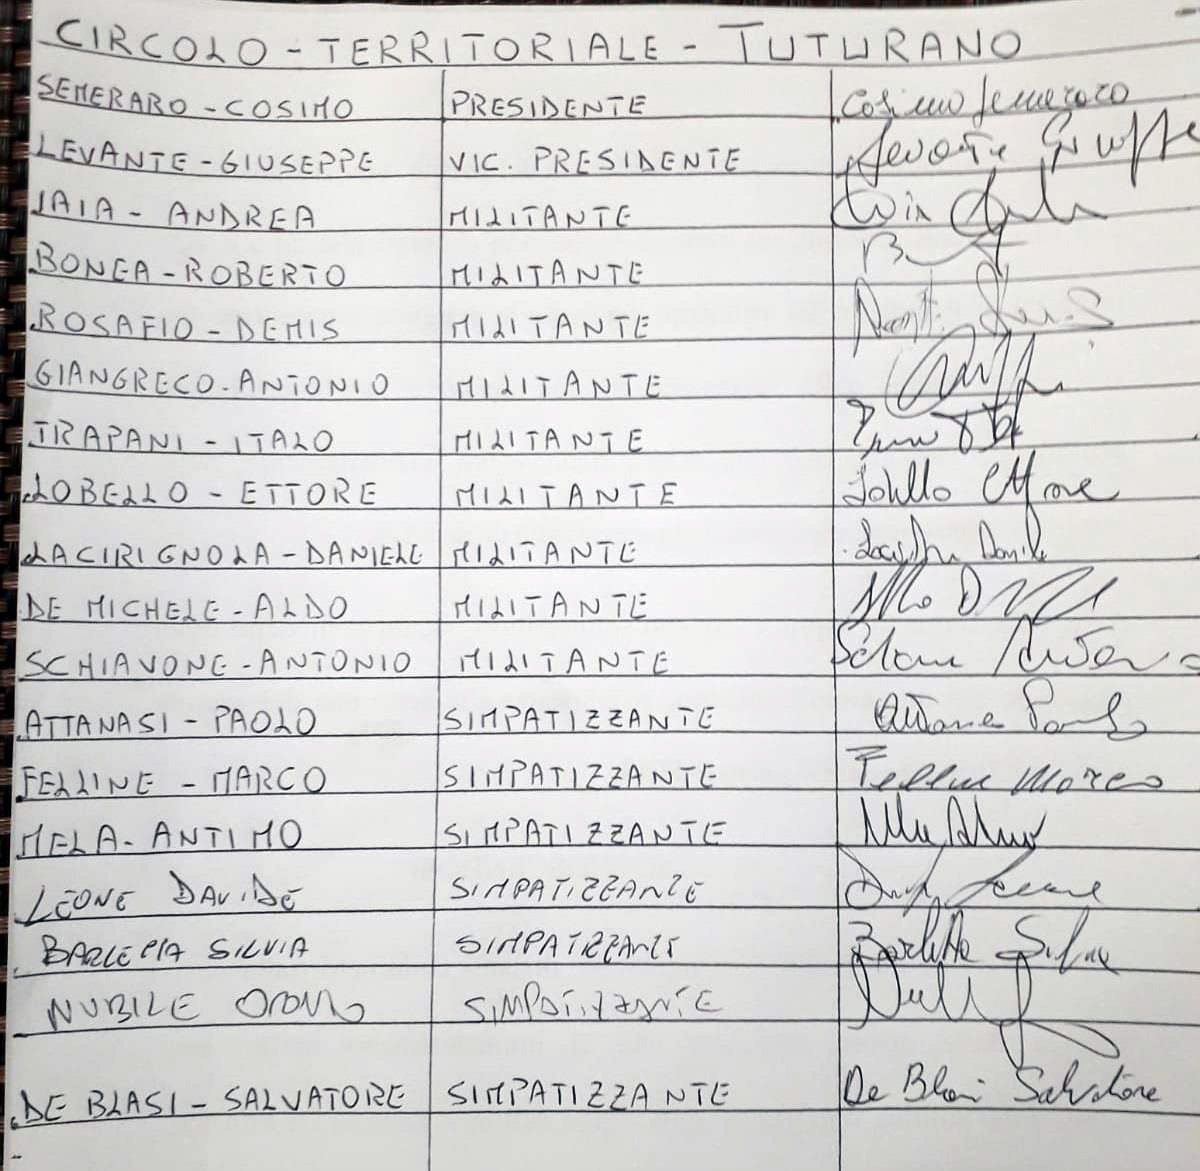 CIRCOLO - TERRITORIALE - TUTURANO
SEMERARO - COSIMO PRESIDENTE Cosimo Semeraro
LEVANTE - GIUSEPPE VIC. PRESIDENTE
IAIA - ANDREA MILITANTE
BONEA - ROBERTO MILITANTE
ROSAFIO - DEMIS MILITANTE
GIANGRECO - ANTONIO MILITANTE
TRAPANI - ITALO MILITANTE
LOBELLO - ETTORE MILITANTE Lobello Ettore
LACIRIGNOLA - DANIELE MILITANTE
DE MICHELE - ALDO MILITANTE
SCHIAVONE - ANTONIO MILITANTE
ATTANASI - PAOLO SIMPATIZZANTE
FELLINE - MARCO SIMPATIZZANTE Felline Marco
MELA - ANTIMO SIMPATIZZANTE
LEONE DAVIDE SIMPATIZZANTE
SILVIA SIMPATIZZANTE Silvia
NUBILE SIMPATIZZANTE
DE BLASI - SALVATORE SIMPATIZZANTE De Blasi Salvatore